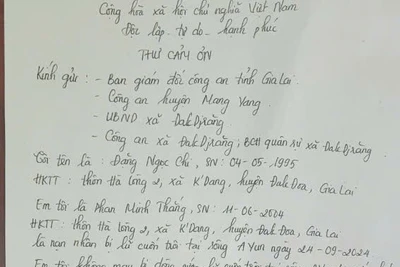 Cộng hòa xã hội chủ nghĩa Việt Nam
Độc lập - tự do - hạnh phúc
THƯ CẢM ƠN
Kính gửi : - Ban giám đốc công an tỉnh Gia Lai
- Công an huyện Mang Yang
- UBND xã Đak Djrăng
- Công an xã Đak Djrăng; BCH quân sự xã Đak Djrăng
Tôi tên là : Đặng Ngọc Chi, SN: 04-05-1995
HKTT : thôn Hà lòng 2, xã K'Dang, huyện Đak Đoa, Gia Lai
Em tôi là Phan Minh Thắng, SN: 11-06-2004
HKTT: thôn Hà lòng 2, xã K'Dang, huyện Đak Đoa, Gia Lai
là nạn nhân bị lũ cuốn trôi tại sông A Yun ngày 24-09-2024
Em tôi không may bị dòng